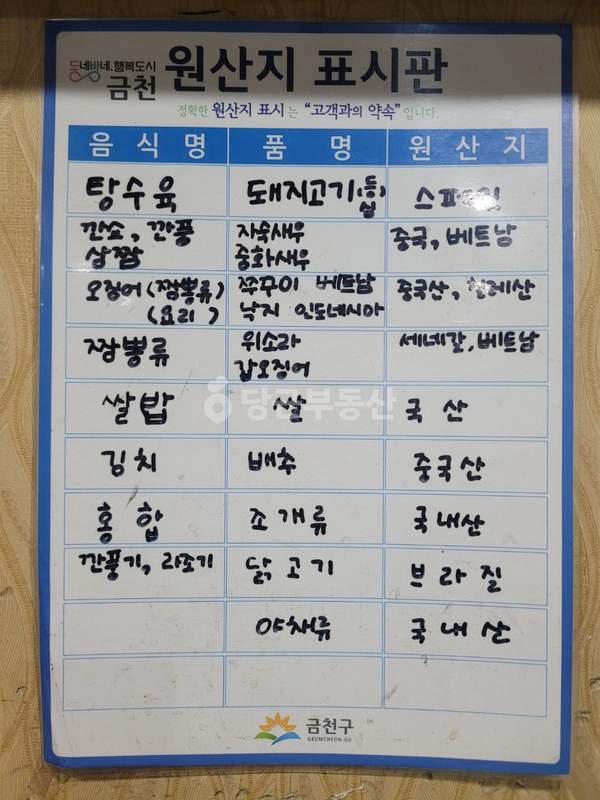 동네방네, 행복도시
금천
원산지 표시판
정확한 원산지 표시는 "고객과의 약속" 입니다.
음식명 품명 원산지
탕수육 돼지고기(등심)
깐소, 깐풍 자숙새우 중국, 베트남
삼짬 중화새우
오징어(짬뽕류) 쭈꾸미 베트남 중국산,
(요리) 낙지 인도네시아
짬뽕류 위소라 세네갈, 베트남
갑오징어
쌀밥 쌀 국산
김치 배추 중국산
홍합 조개류 국내산
깐풍기, 라조기 닭고기 브라질
야채류 국내산
당근부동산
금천구
GEUMCHEON-GU